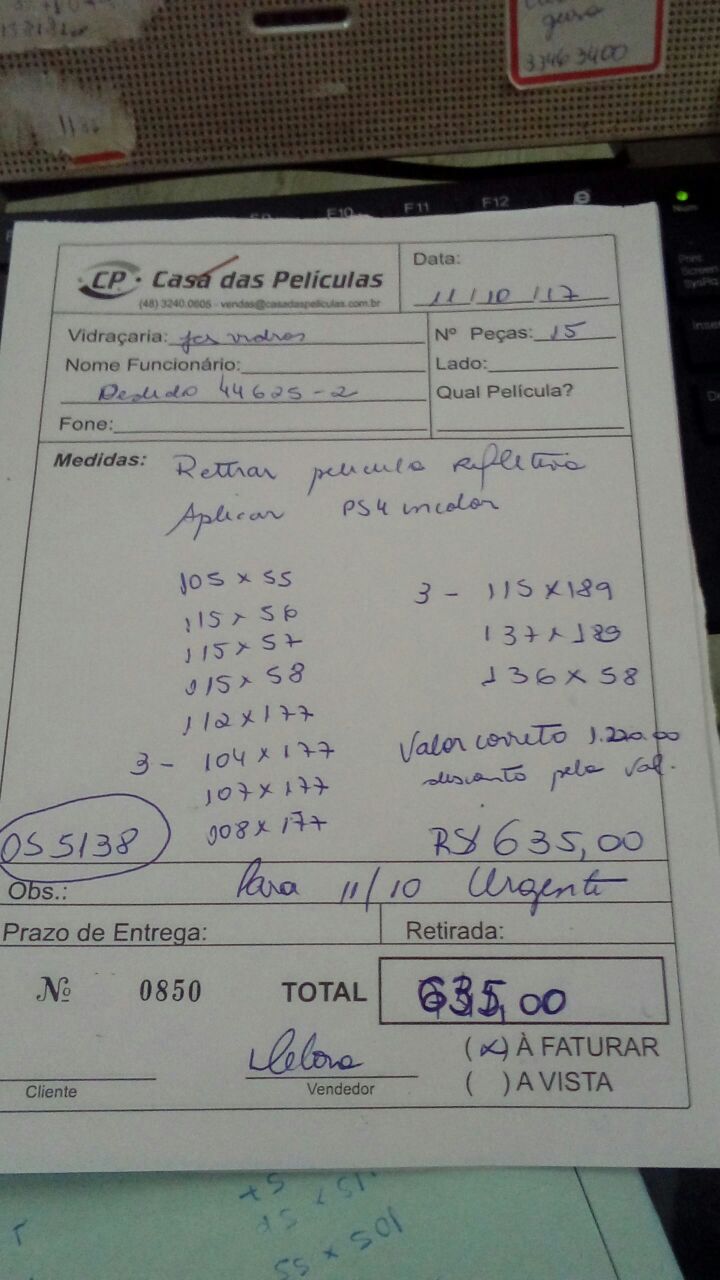 33463400
F10 F11 F12
CP · Casa das Películas
(48) 3240.0606 - vendas@casadaspeliculas.com.br
Data:
11/10/17
Vidraçaria: jcs vidros
Nº Peças: 15
Nome Funcionário:
Lado:
Pedido 44625-2
Qual Película?
Fone:
Medidas: Retirar pelicula refletiva
Aplicar PS4 incolor
105 x 55
115 x 56
115 x 57
115 x 58
112 x 177
3 - 104 x 177
107 x 177
108 x 177
3 - 115 x 189
137 x 189
136 x 58
Valor correto 1.220.00
desconto pelo Val.
R$ 635,00
OS 5138
Obs.: Para 11/10 Urgente
Prazo de Entrega:
Retirada:
Nº 0850 TOTAL 635,00
Debora
(x) À FATURAR
Cliente
Vendedor
( ) A VISTA
105 x 55